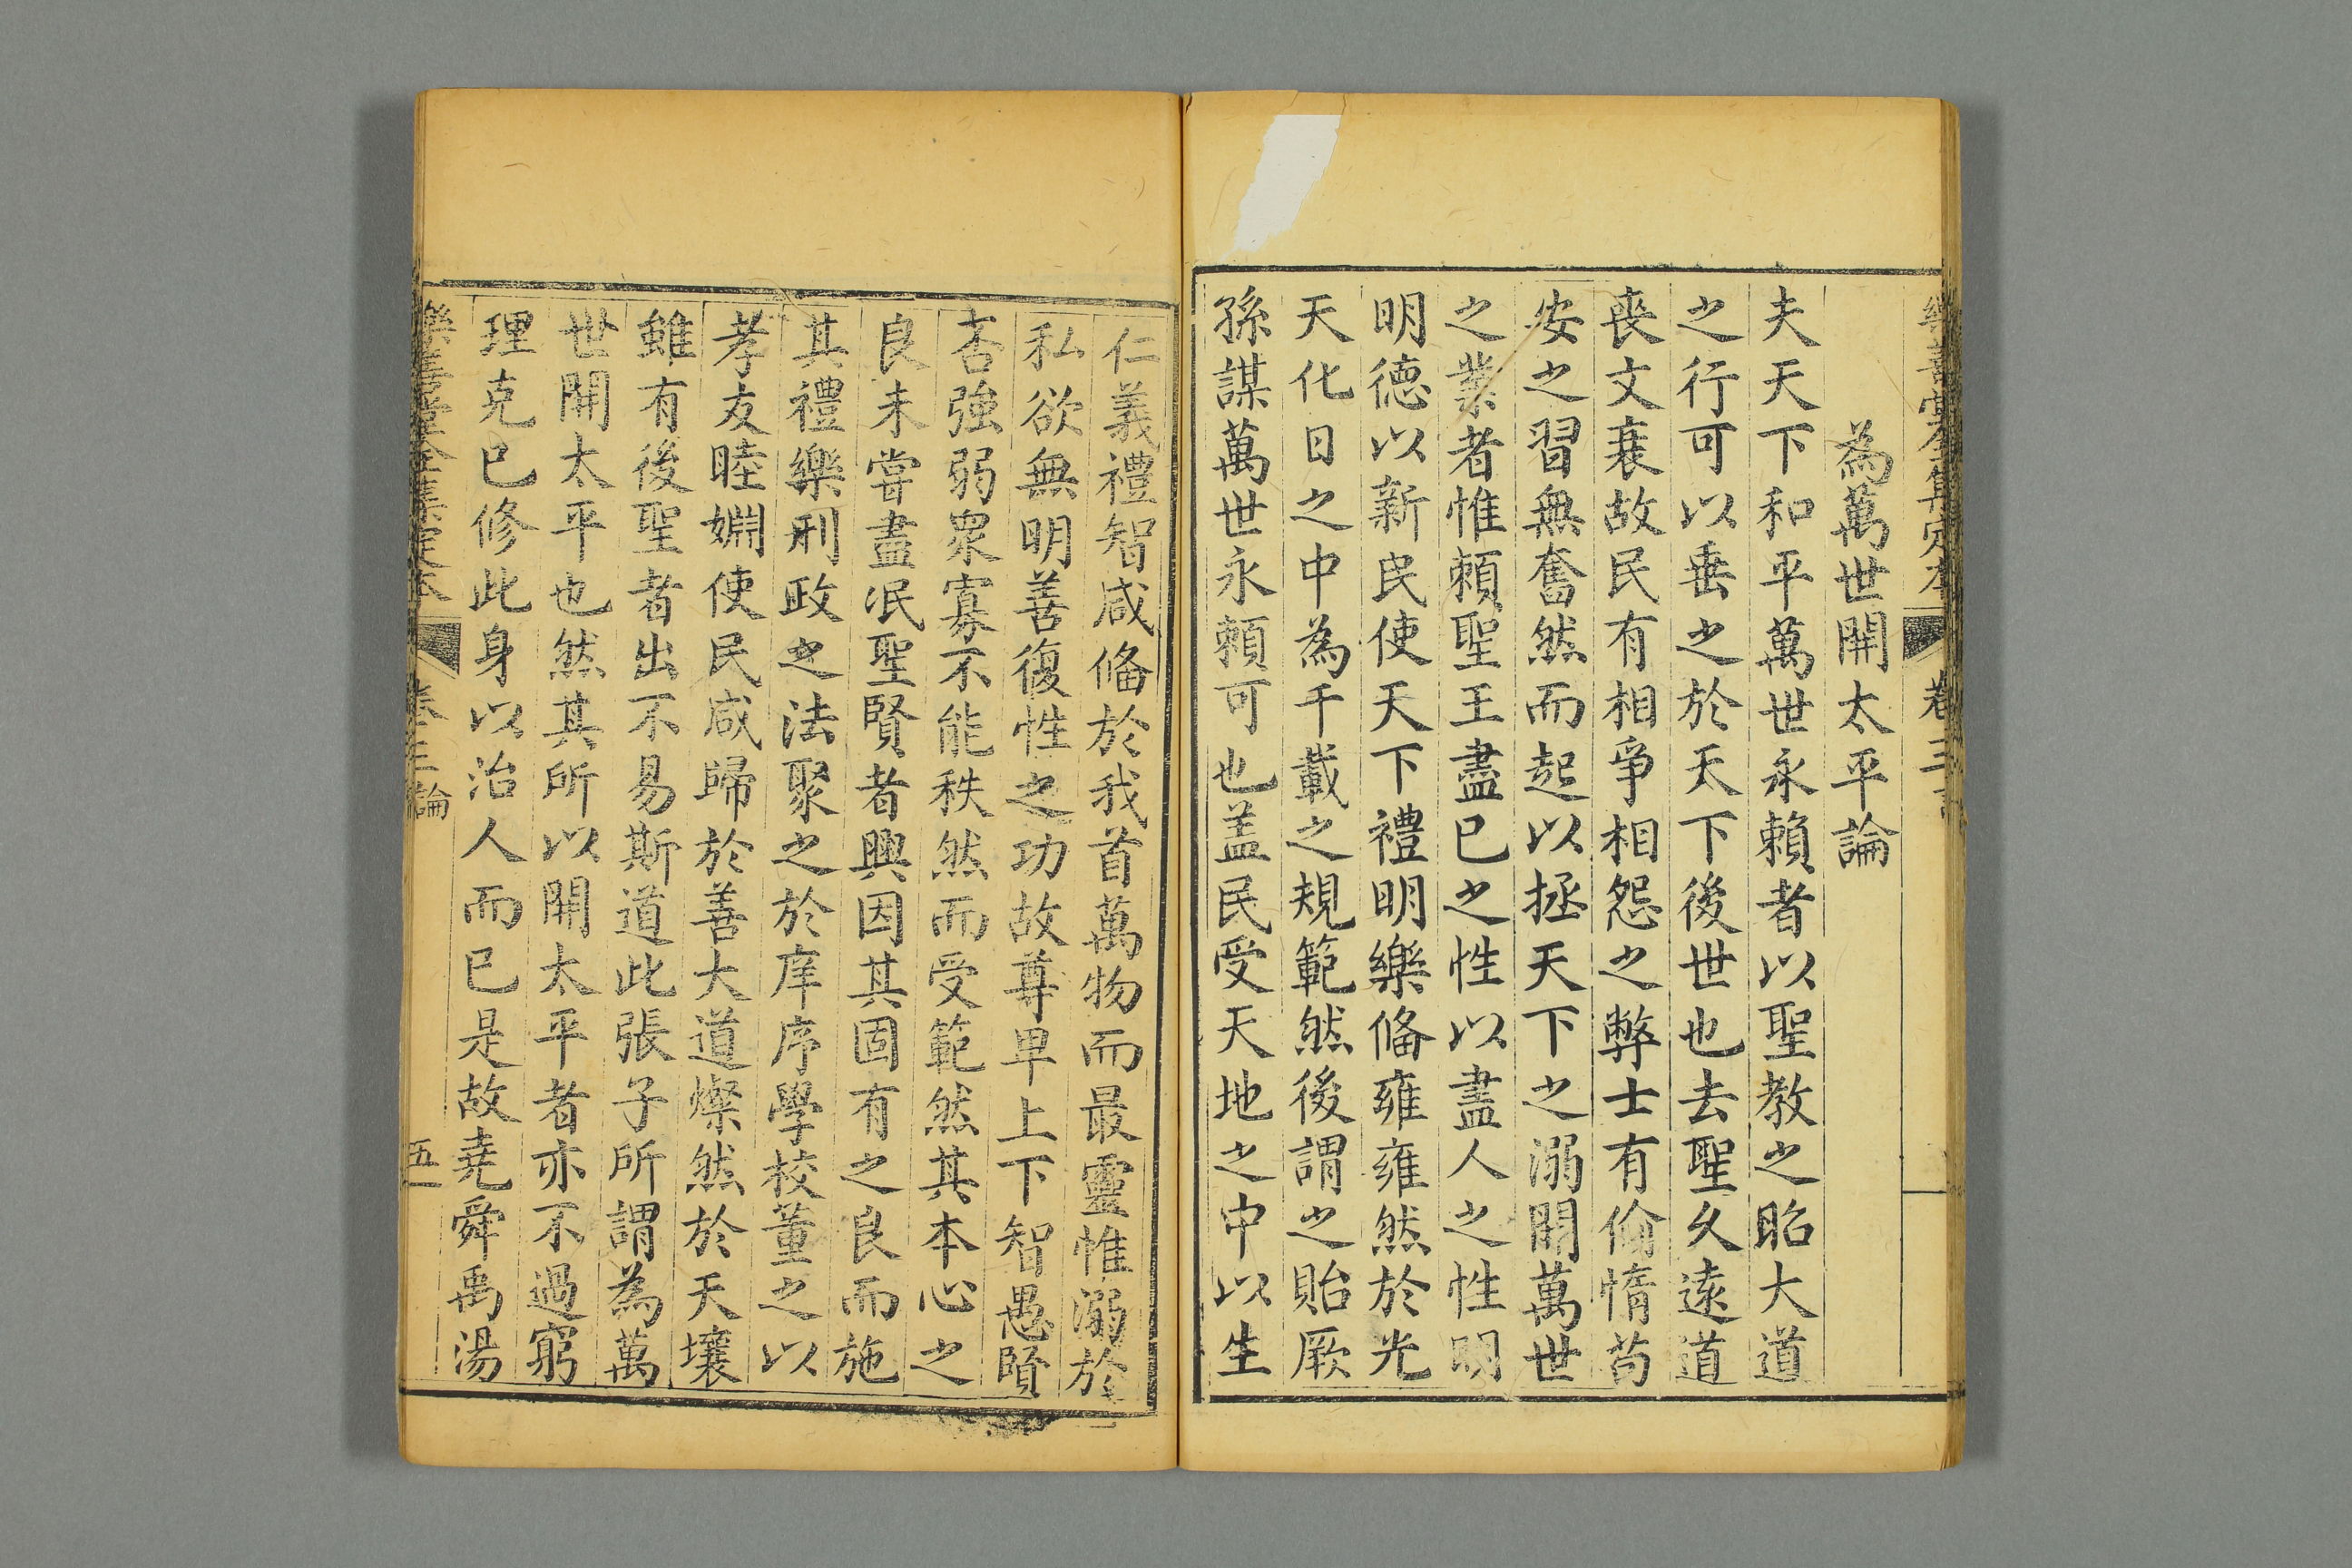 樂善堂全集定本 卷三
為萬世開太平論
夫天下和平萬世永賴者以聖教之昭大道
之行可以垂之於天下後世也去聖久遠道
喪文衰故民有相爭相怨之弊士有偷惰苟
安之習無奮然而起以拯天下之溺開萬世
之業者惟賴聖王盡已之性以盡人之性明
明德以新民使天下禮明樂俻雍雍然於光
天化日之中為千載之規範然後謂之貽厥
孫謀萬世永賴可也盖民受天地之中以生
仁義禮智咸俻於我首萬物而最靈惟溺於
私欲無明善復性之功故尊卑上下智愚賢
否強弱眾寡不能秩然而受範然其本心之
良未嘗盡泯聖賢者興因其固有之良而施
其禮樂刑政之法聚之於庠序學校董之以
孝友睦婣使民咸歸於善大道燦然於天壤
雖有後聖者出不易斯道此張子所謂為萬
世開太平也然其所以開太平者亦不過窮
理克已修此身以治人而已是故堯舜禹湯
樂善堂全集定本 卷三 論 五一